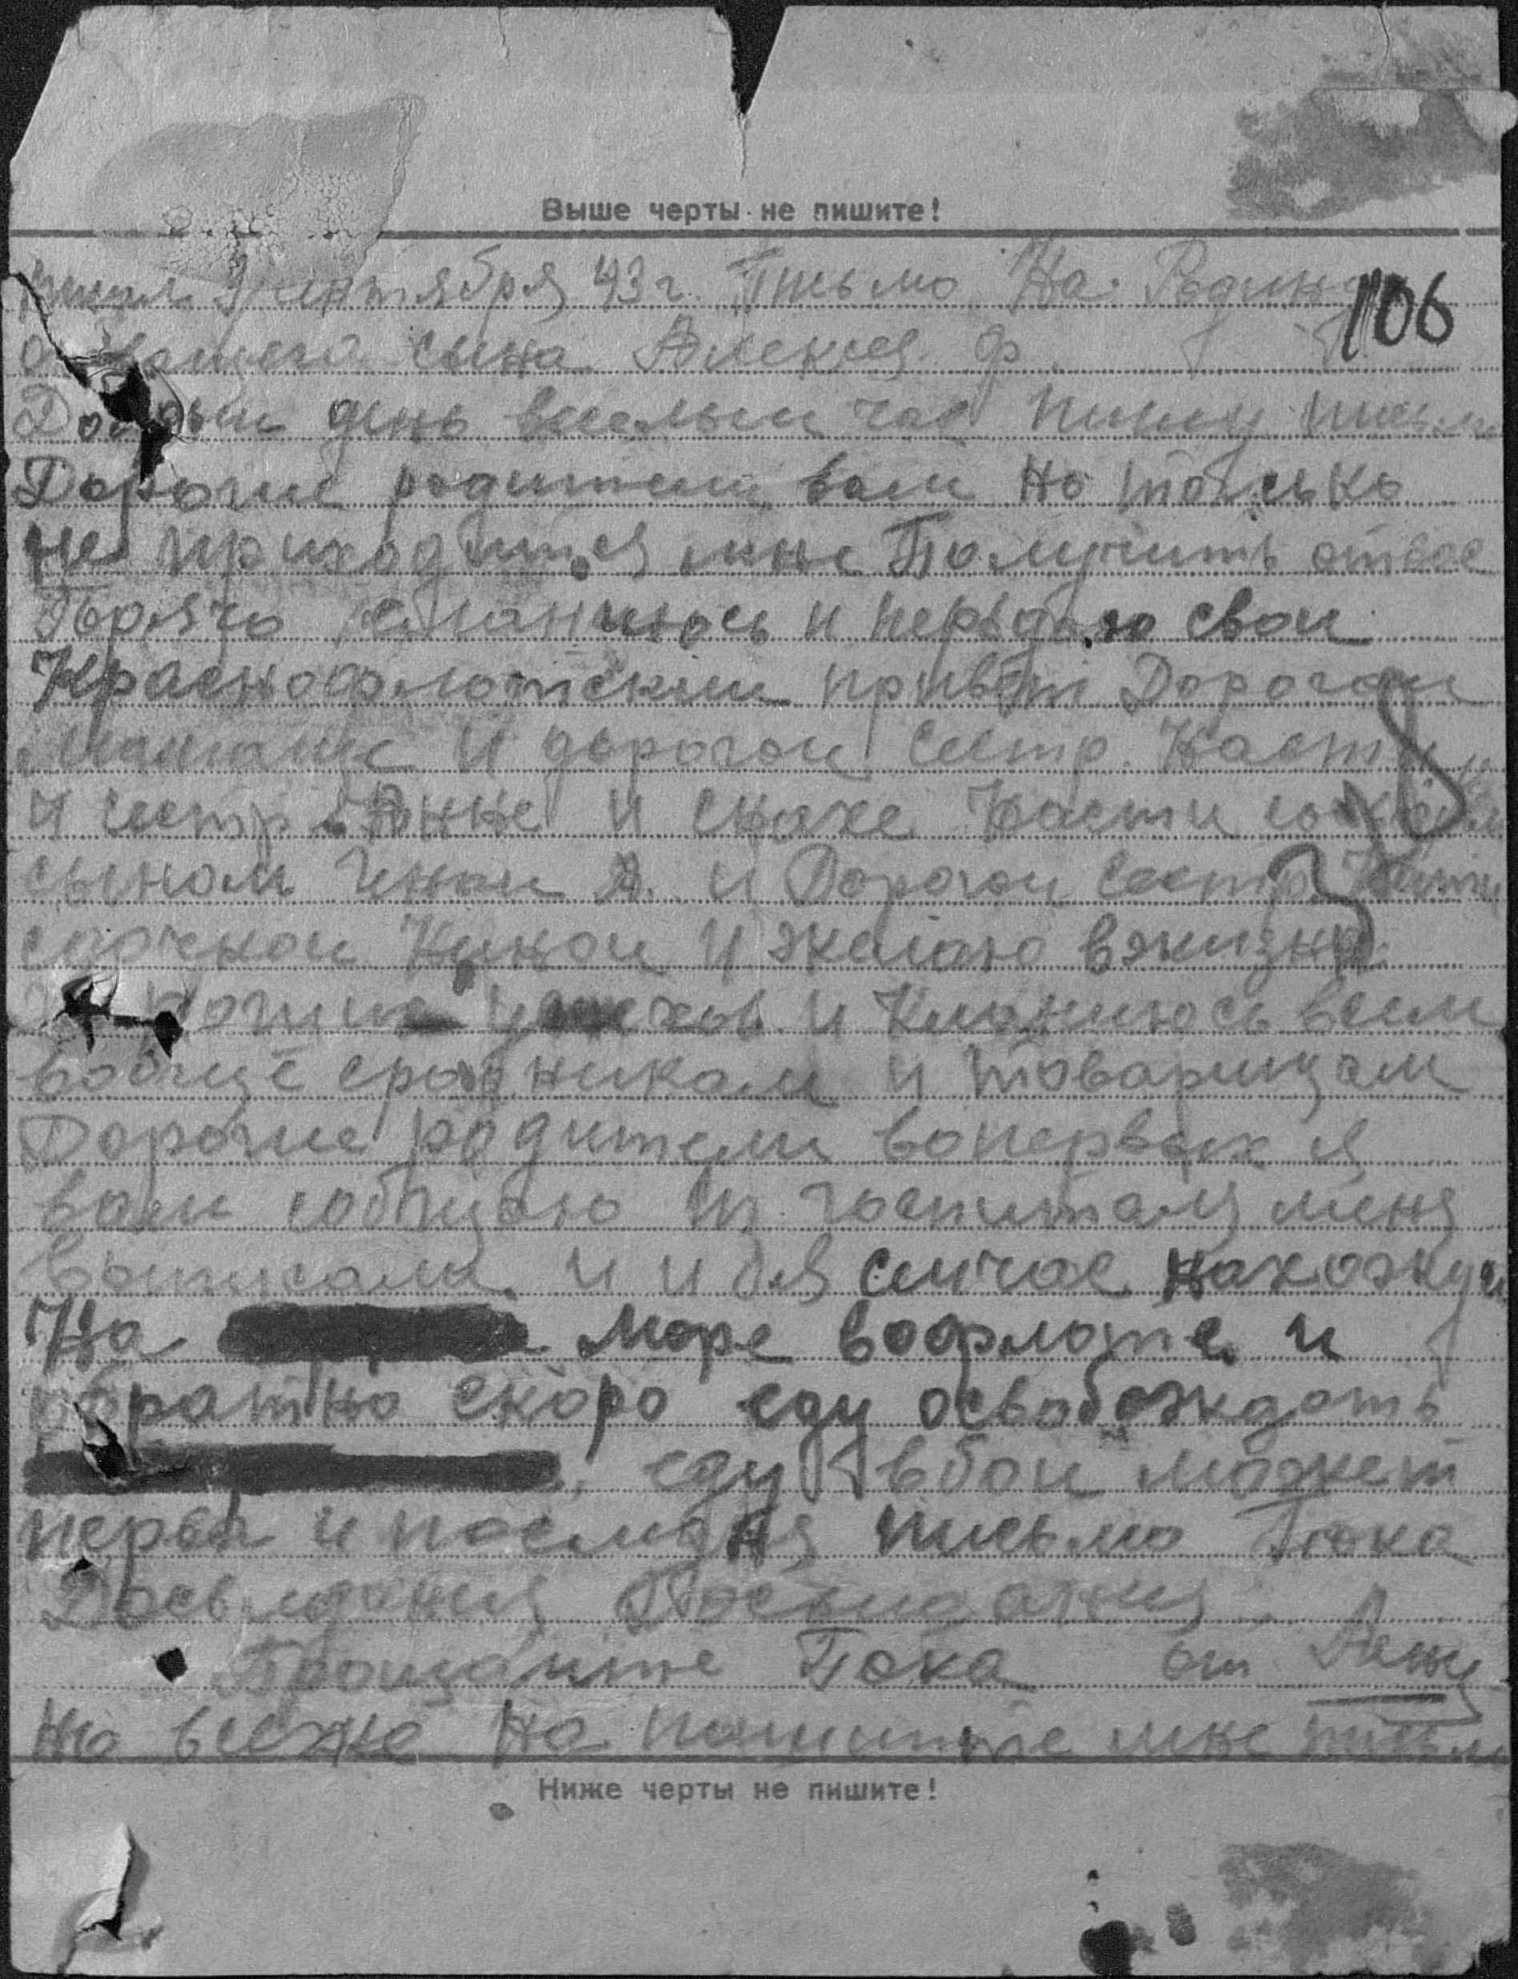 Выше черты не пишите!
сентября 43 г. Письмо На Родину
106
вашего сына Алексея Ф.
день веселыи час пишу письмо
Дорогие родители вам но только
не приходится мне Получить ответ
Горячо кланиюсь и передаю свои
Краснофлотскии привет Дорогои
Мамаше и дорогои сестр. Насти
и сестр. Анне и снахе Насти
сыном А. и Дорогои сестр.
сдочкои Нинои и желаю вжизни
и Кланиюсь всем
вообще сродникам и товарищам
Дорогие родители вопервых я
вам собщаю из госпиталя меня
выписали и и бля сичас нахожус
На море вофлоте и
обратно скоро еду освобождать
еду вбои может
перва и последня письмо Пока
Досьвидания
Прощаите Пока от
Но всеже На пишите мне письмо
Ниже черты не пишите!